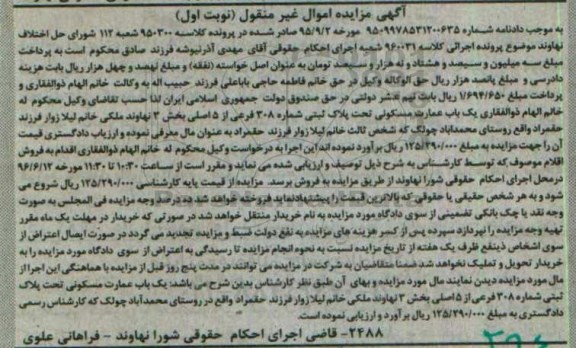 آگهی مزایده اموال غیر منقول (نوبت اول)
به موجب دادنامه شماره ۹۵۰۹۹۷۸۵۳۱۲۰۰۶۳۵ مورخه ۹۵/۹/۲ صادر شده در پرونده کلاسه ۹۵۰۳۰۰ شعبه ۱۱۲ شورای حل اختلاف
نهاوند موضوع پرونده اجرائی کلاسه ۹۶۰۰۳۱ شعبه اجرای احکام حقوقی آقای مهدی آذرنیوشه فرزند صادق محکوم است به پرداخت
مبلغ سه میلیون و سیصد و هشتاد و نه هزار و سیصد تومان به عنوان اصل خواسته (نفقه) و مبلغ نهصد و چهل هزار ریال بابت هزینه
دادرسی و مبلغ پانصد هزار ریال حق الوکاله وکیل در حق خانم فاطمه حاجی باباعلی فرزند حبیب اله به وکالت خانم الهام ذوالفقاری و
پرداخت مبلغ ۱/۶۹۴/۶۵۰ ریال بابت نیم عشر دولتی در حق صندوق دولت جمهوری اسلامی ایران لذا حسب تقاضای وکیل محکوم له
خانم الهام ذوالفقاری یک باب عمارت مسکونی تحت پلاک ثبتی شماره ۳۰۸ فرعی از ۵ اصلی بخش ۳ نهاوند ملکی خانم لیلا زوار فرزند
حقمراد واقع روستای محمدآباد چولک که شخص ثالث خانم لیلا زوار فرزند حقمراد به عنوان مال معرفی نموده و ارزیاب دادگستری قیمت
آن را جهت مزایده به مبلغ ۱۲۵/۲۹۰/۰۰۰ ریال برآورد نموده اند این اجرا به درخواست وکیل محکوم له خانم الهام ذوالفقاری اقدام به فروش
اقلام موصوف که توسط کارشناس به شرح ذیل توصیف و ارزیابی شده می نماید و مقرر است از ساعت ۱۰:۳۰ تا ۱۱:۳۰ مورخه ۹۶/۶/۱۲
در محل اجرای احکام حقوقی شورا نهاوند از طریق مزایده به فروش برسد. مزایده از قیمت پایه کارشناسی ۱۲۵/۲۹۰/۰۰۰ ریال شروع می
شود و به هر شخص حقیقی یا حقوقی که بالاترین قیمت را پیشنهاد نماید فروخته خواهد شد ده درصد وجه مزایده فی المجلس به صورت
وجه نقد یا چک بانکی تضمینی از سوی دادگاه مورد مزایده به نام خریدار منتقل خواهد شد در صورتی که خریدار در مهلت یک ماه مقرر
تهیه وجه مزایده را نپردازد سپرده پس از کسر هزینه های مزایده به نفع دولت ضبط و مزایده تجدید می گردد در صورت ایصال اعتراض از
سوی اشخاص ذینفع ظرف یک هفته از تاریخ مزایده نسبت به نحوه انجام مزایده تا رسیدگی به اعتراض از سوی دادگاه مورد مزایده را به
خریدار تحویل و تملیک نخواهد شد ضمنا متقاضیان به شرکت در مزایده می توانند در مدت پنج روز قبل از مزایده با هماهنگی این اجرا از
مال مورد مزایده دیدن نمایند مال مورد مزایده و بهای آن طبق نظر کارشناس بدین شرح می باشد: یک باب عمارت مسکونی تحت پلاک
ثبتی شماره ۳۰۸ فرعی از ۵ اصلی بخش ۳ نهاوند ملکی خانم لیلا زوار فرزند حقمراد واقع در روستای محمدآباد چولک که کارشناس رسمی
دادگستری به مبلغ ۱۲۵/۲۹۰/۰۰۰ ریال برآورد و ارزیابی نموده است.
۲۴۸۸- قاضی اجرای احکام حقوقی شورا نهاوند - فراهانی علوی